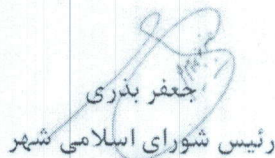 جعفر بذری
رئیس شورای اسلامی شهر